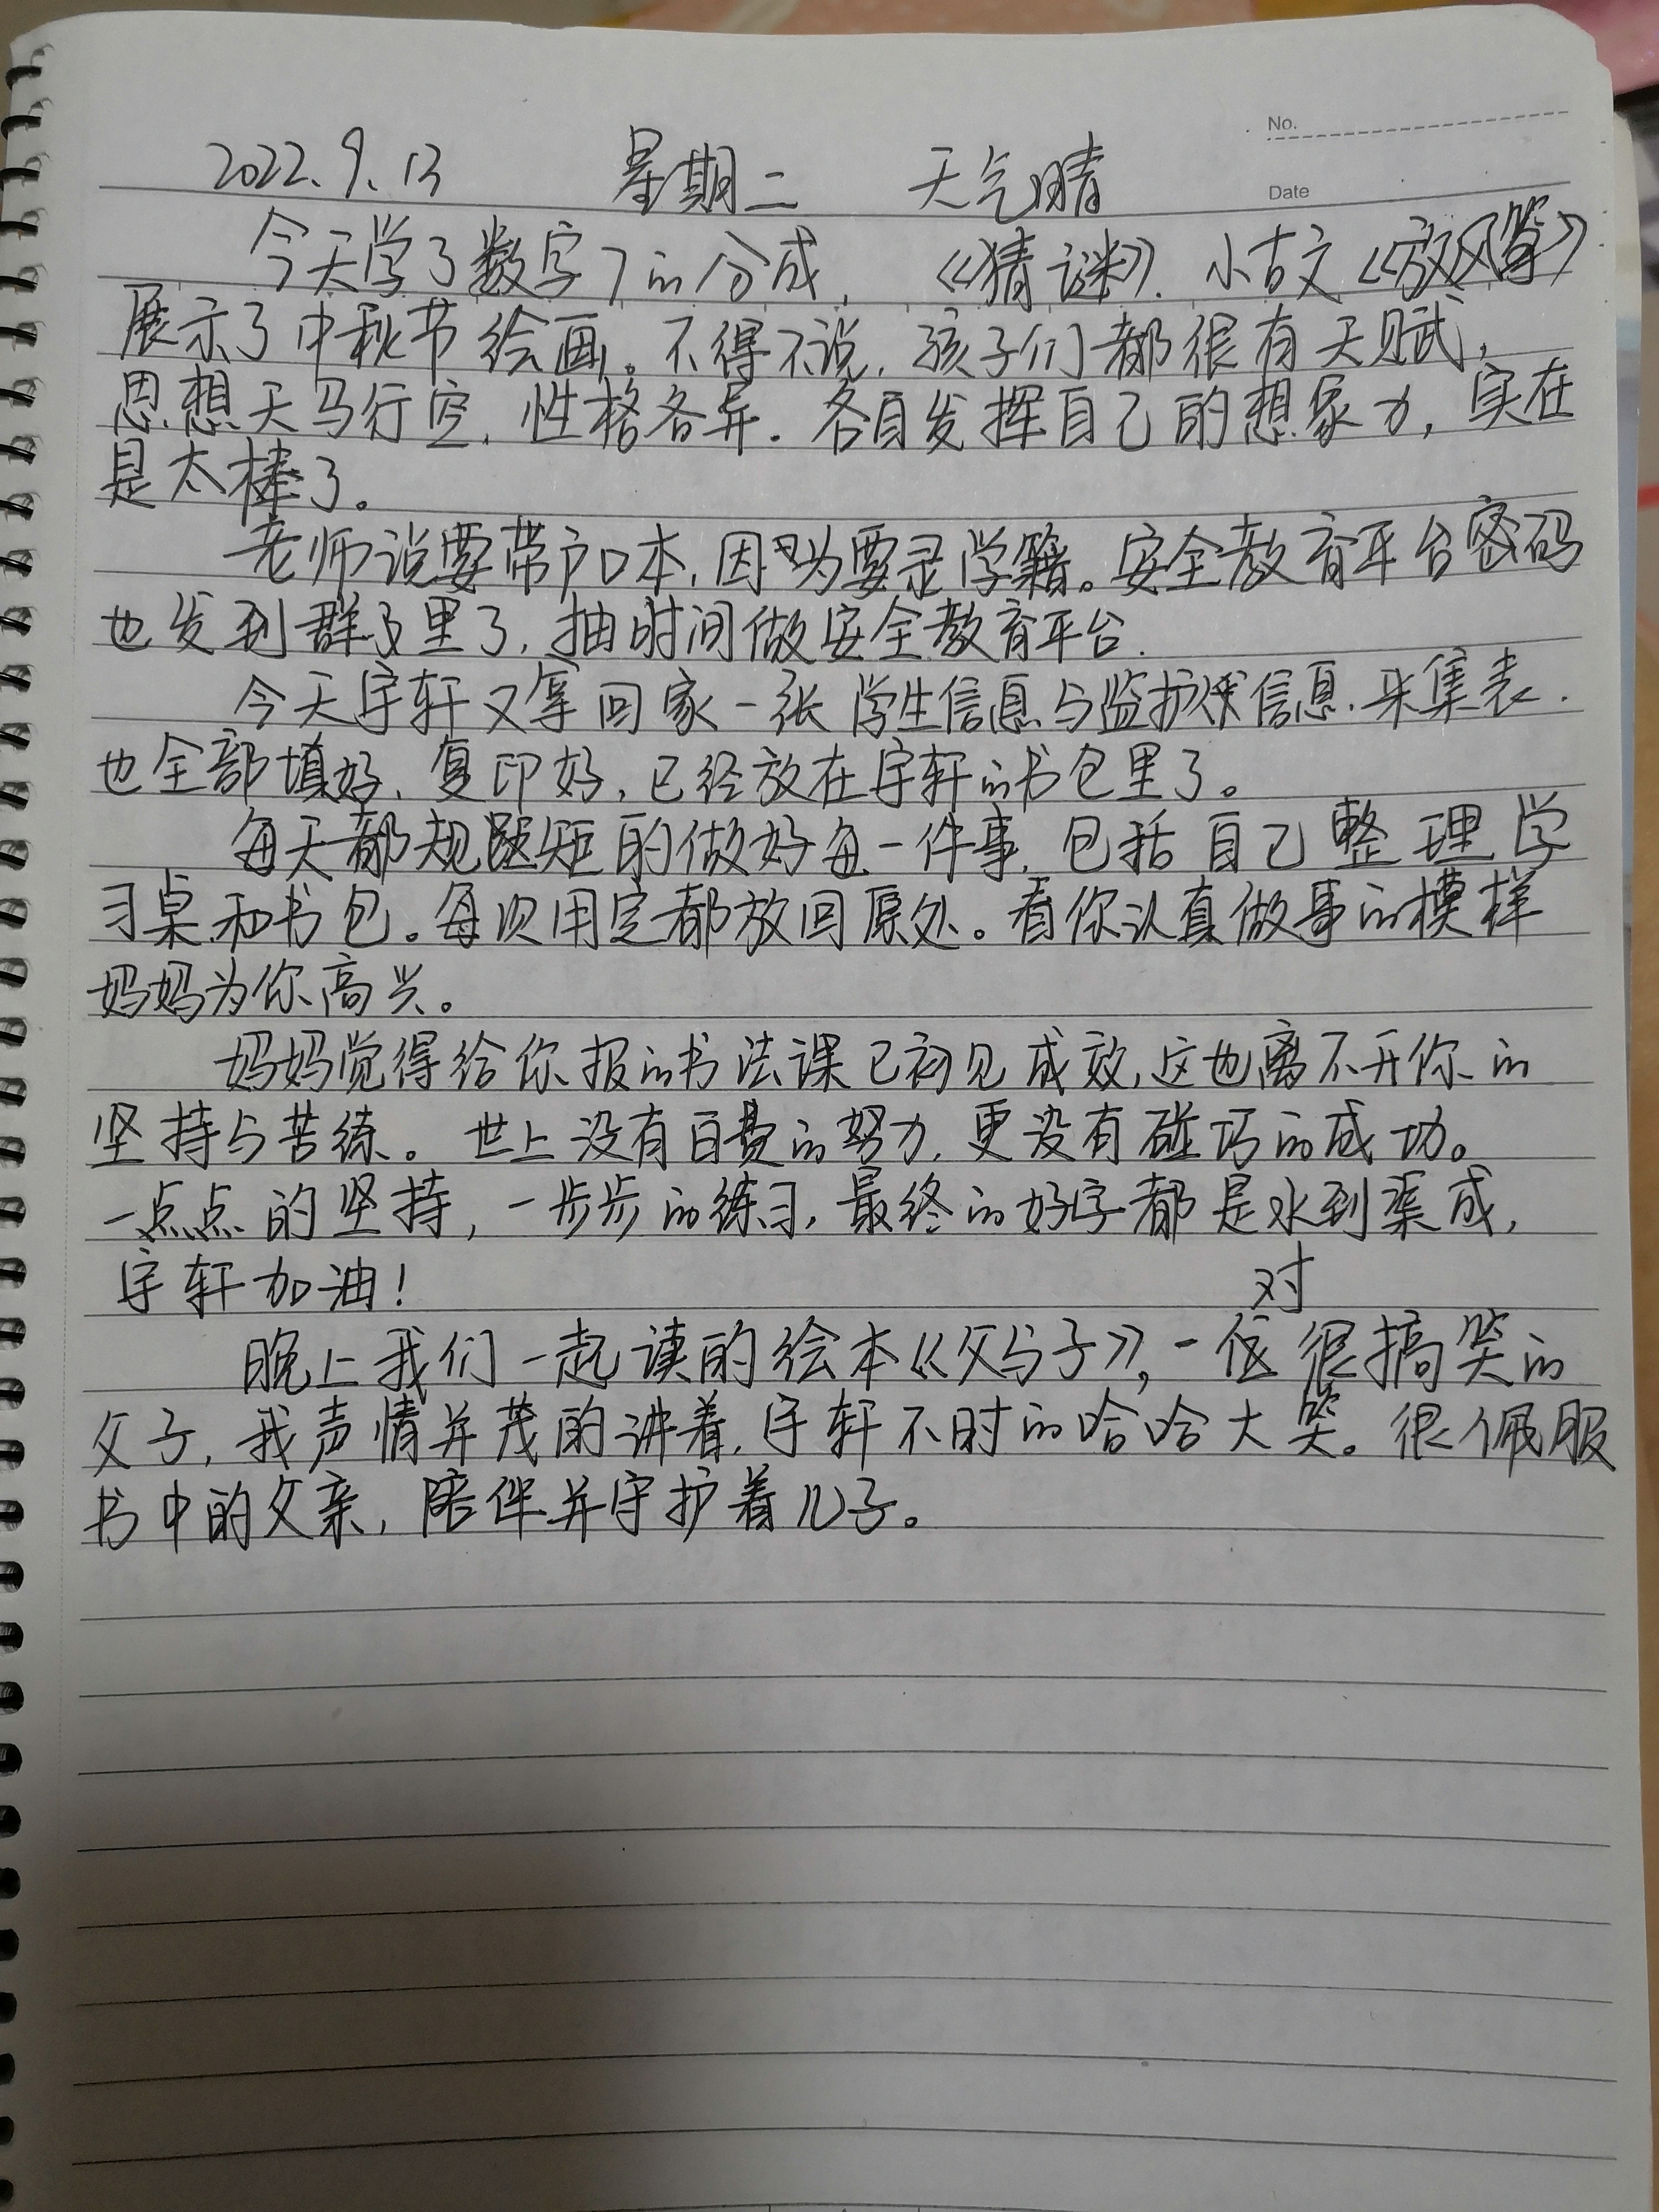 No.
2022.9.13 星期二 天气晴
Date
今天学了数字7的分成,《猜谜》.小古文《放风筝》
展示了中秋节绘画。不得不说,孩子们都很有天赋,
思想天马行空,性格各异.各自发挥自己的想象力,实在
是太棒了。
老师说要带户口本,因为要录学籍。安全教育平台密码
也发到群里了,抽时间做安全教育平台.
今天宇轩又拿回家一张学生信息与监护信息.采集表.
也全部填好、复印好,已经放在宇轩的书包里了。
每天都规规矩矩的做好每一件事,包括自己整理学
习桌和书包。每次用完都放回原处。看你认真做事的模样
妈妈为你高兴。
妈妈觉得给你报的书法课已初见成效,这也离不开你的
坚持与苦练。世上没有白费的努力,更没有碰巧的成功。
一点点的坚持,一步步的练习,最终的好字都是水到渠成,
宇轩加油!
对
晚上我们一起读的绘本《父与子》,一 很搞笑的
父子,我声情并茂的讲着,宇轩不时的哈哈大笑。很佩服
书中的父亲,陪伴并守护着儿子。